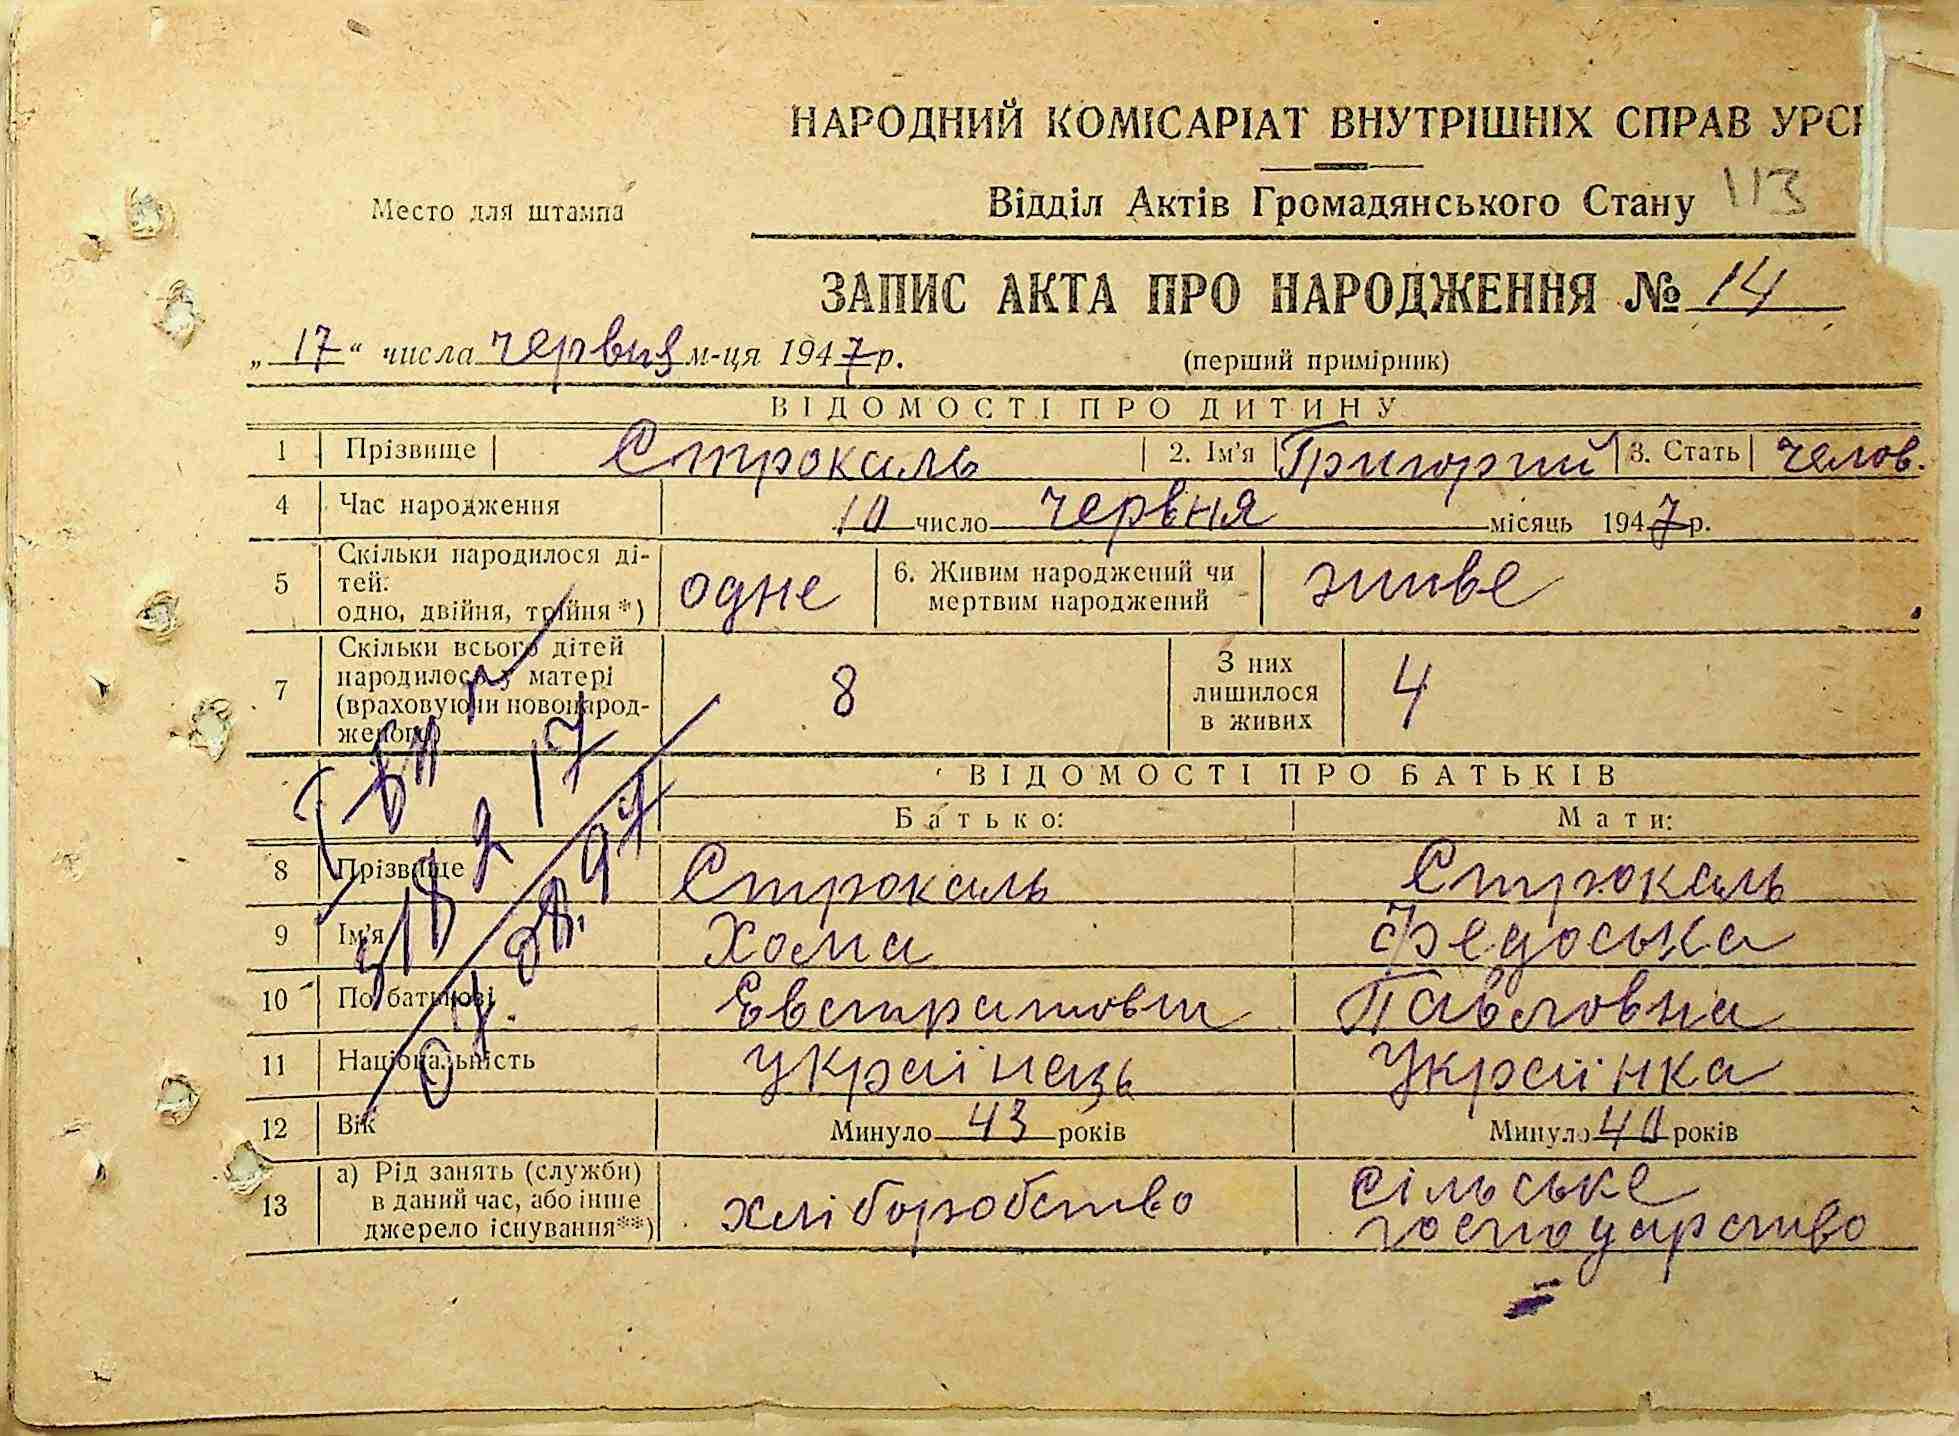 НАРОДНИЙ КОМІСАРІАТ ВНУТРІШНІХ СПРАВ УРСР
Место для штампа
Відділ Актів Громадянського Стану 113
ЗАПИС АКТА ПРО НАРОДЖЕННЯ № 14
„17“ числа червня м-ця 1947 р.
(перший примірник)
ВІДОМОСТІ ПРО ДИТИНУ
1 Прізвище Строкаль 2. Ім'я Григорий 3. Стать челов.
4 Час народження 10 число червня місяць 1947 р.
5 Скільки народилося ді-
тей:
одно, двійня, трійня *) одне
6. Живим народжений чи
мертвим народжений живе
7 Скільки всього дітей
народилося у матері
(враховуючи новонарод-
женого) 8
З них
лишилося
в живих 4
ВІДОМОСТІ ПРО БАТЬКІВ
Батько: Мати:
8 Прізвище Строкаль Строкаль
9 Ім'я Хома Федоська
10 По батькові Евстратови Павловна
11 Національність Українець Українка
12 Вік Минуло 43 років Минуло 40 років
13 а) Рід занять (служби)
в даний час, або інше
джерело існування**) хліборобство сільське
господарство